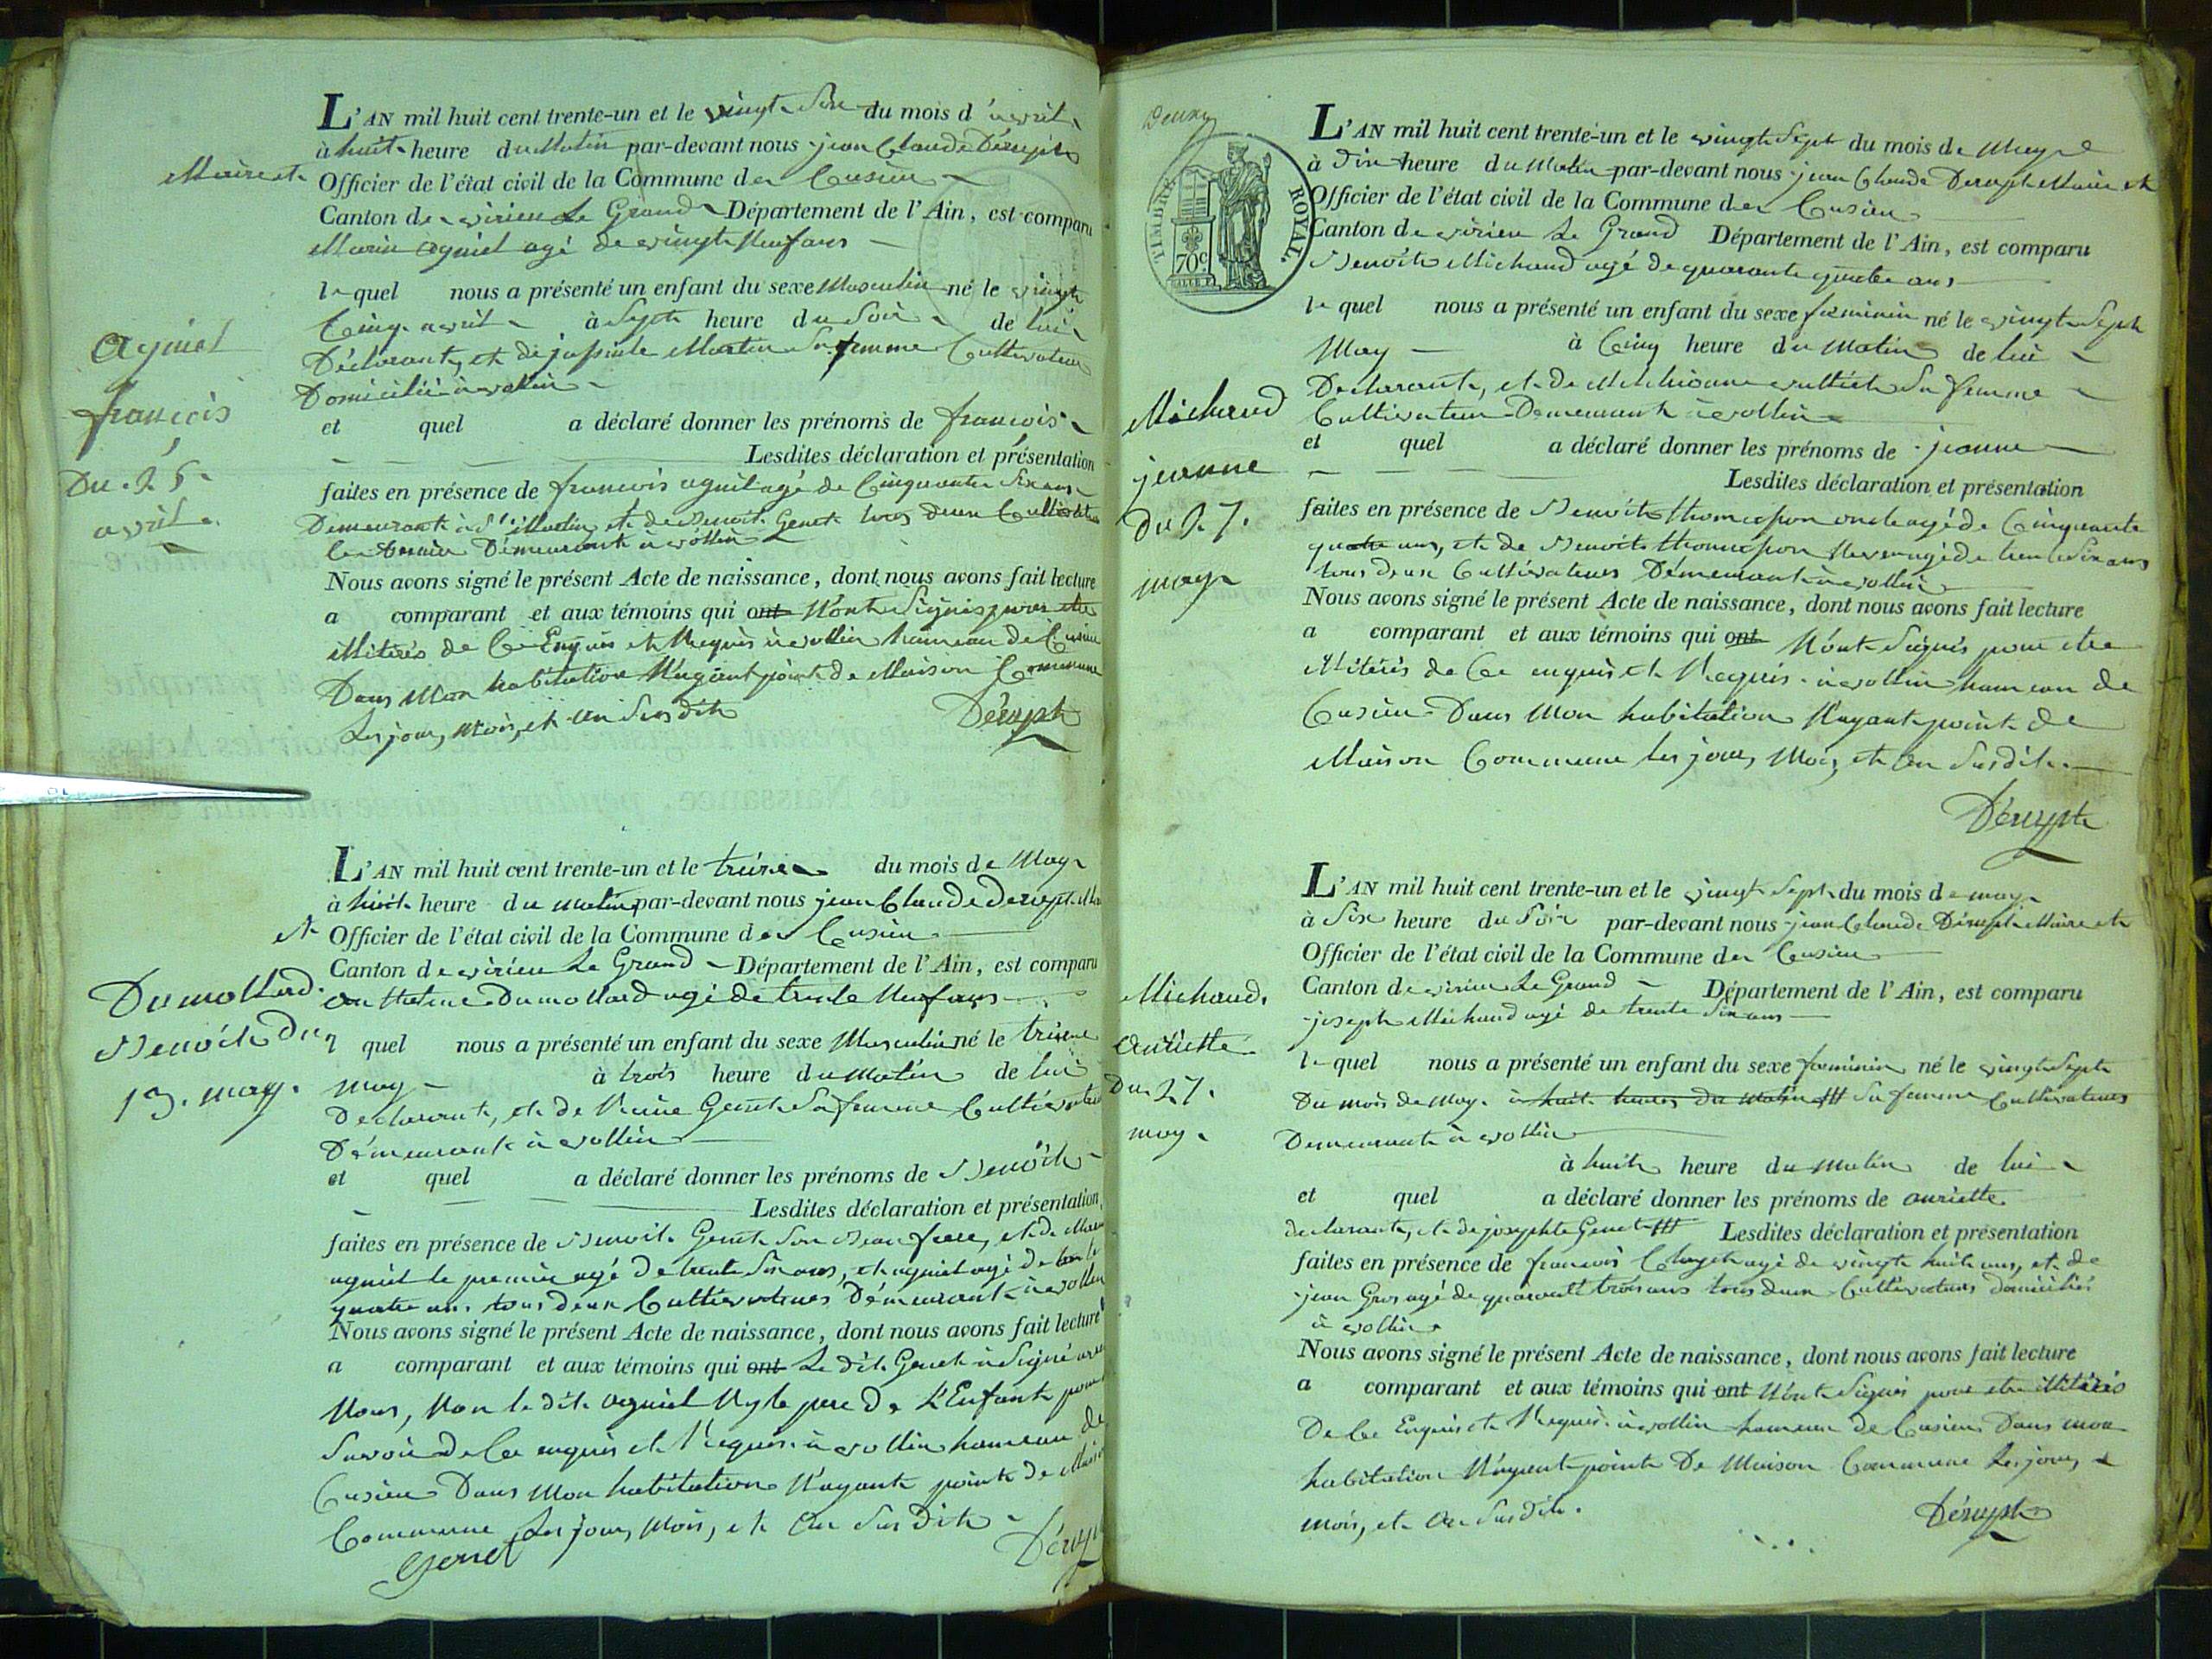 L'AN mil huit cent trente-un et le vingt Six du mois d'avril
à huit heure du Matin par-devant nous jean Claude Déruph
Maire et Officier de l'état civil de la Commune de Cusieu
Canton de virieu Le Grand Département de l'Ain, est comparu
Marin agniel agé de vingt Neuf ans
le quel nous a présenté un enfant du sexe Masculin né le vingt
Cinq avril à Sept heure du Soir de lui
Déclarant, et de Martin Sa femme Cultivateur
Domicilié à vollin
et quel a déclaré donner les prénoms de françois
Lesdites déclaration et présentation
faites en présence de francois agniel agé de Cinquante Six ans
Demeurant à St Martin, et de Benoit Genet tous deux Cultivateurs
le dernier Demeurant à vollin
Nous avons signé le présent Acte de naissance, dont nous avons fait lecture
a comparant et aux témoins qui ont N'ont Signés pour etre
illitérés de Ce Enquis et Requis à vollin hameau de Cusieu
Dans Mon habitation N'ayant point de Maison Commune
Les jour, Mois, et an Susdit
Déruph
agniel
françois
Du 25
avril
L'AN mil huit cent trente-un et le treize du mois de May
à huit heure du matin par-devant nous jean Claude Deruph
et Officier de l'état civil de la Commune de Cusieu
Canton de virieu Le Grand Département de l'Ain, est comparu
Dumollard agé de trente Neuf ans
quel nous a présenté un enfant du sexe Masculin né le treize
may à trois heure du Matin de lui
Declarant, et de Genet Sa femme Cultivateur
Démeurant à vollin
et quel a déclaré donner les prénoms de Benoit
Lesdites déclaration et présentation
faites en présence de Benoit Genet Son Beau frere, et de
agniel le premier agé de trente Six ans, et agniel agé de
quatre ans tous deux Cultivateurs Démeurant à vollin
Nous avons signé le présent Acte de naissance, dont nous avons fait lecture
a comparant et aux témoins qui ont Le dit Genet à Signé avec
Nous, Non le dit agniel Ny le pere De L'Enfant pour
Savoir de Ce enquis et Requis à vollin hameau de
Cusieu Dans Mon habitation N'ayant point de Maison
Commune Les jour, Mois, et An Susdit
Genet
Déruph
Dumollard
Benoit Du
13. may.
TIMBRE ROYAL.
70c.
L'AN mil huit cent trente-un et le vingt Sept du mois de May
à Dix heure du Matin par-devant nous jean Claude Deruph Maire et
Officier de l'état civil de la Commune de Cusieu
Canton de virieu Le Grand Département de l'Ain, est comparu
Benoit Michaud agé de quarante quatre ans
le quel nous a présenté un enfant du sexe feminin né le vingt Sept
May à Cinq heure du Matin de lui
Declarant, et de Sa femme
Cultivateur Demeurant à vollin
et quel a déclaré donner les prénoms de jeanne
Lesdites déclaration et présentation
faites en présence de Benoit oncle agé de Cinquante
quatre ans, et de Benoit Neveu agé de trente Six ans
tous deux Cultivateurs Démeurant à vollin
Nous avons signé le présent Acte de naissance, dont nous avons fait lecture
a comparant et aux témoins qui ont N'ont Signés pour etre
illitérés de Ce enquis et Requis à vollin hameau de
Cusieu Dans Mon habitation N'ayant point De
Maison Commune les jour, Mois, et An Susdit.
Déruph
Michaud
jeanne
Du 27.
may
L'AN mil huit cent trente-un et le vingt Sept du mois de may
à Six heure du Soir par-devant nous jean Claude Déruph Maire et
Officier de l'état civil de la Commune de Cusieu
Canton de virieu Le Grand Département de l'Ain, est comparu
joseph Michaud agé de trente Six ans
le quel nous a présenté un enfant du sexe feminin né le vingt Sept
Du mois de May à huit heures du Matin Sa femme Cultivateurs
Demeurant à vollin
à huit heure du Matin de lui
et quel a déclaré donner les prénoms de
declarant, et de josephte Genet Lesdites déclaration et présentation
faites en présence de francois agé de vingt huit ans, et de
jean Gros agé de quarante trois ans tous deux Cultivateurs domiciliés
à vollin
Nous avons signé le présent Acte de naissance, dont nous avons fait lecture
a comparant et aux témoins qui ont N'ont Signés pour etre illitérés
De Ce Enquis et Requis à vollin hameau de Cusieu Dans mon
habitation N'ayant point De Maison Commune Les jour,
mois, et An Susdit.
Déruph
Michaud.
Du 27.
may